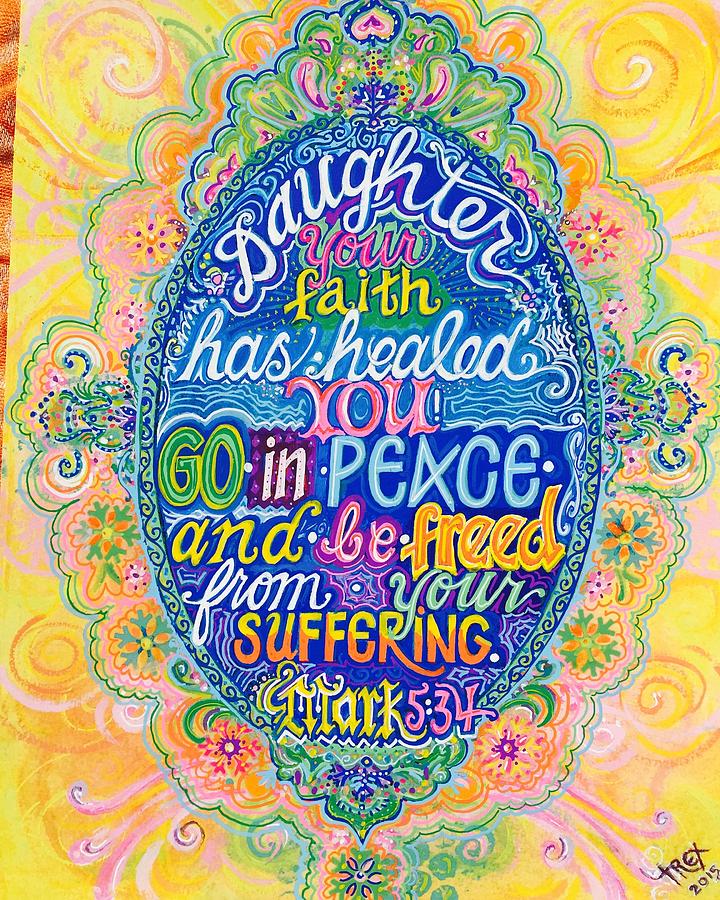 Daughter
your
faith
has healed
YOU!
GO in PEACE
and be freed
from your
SUFFERING.
Mark 5:34
TREX
2015